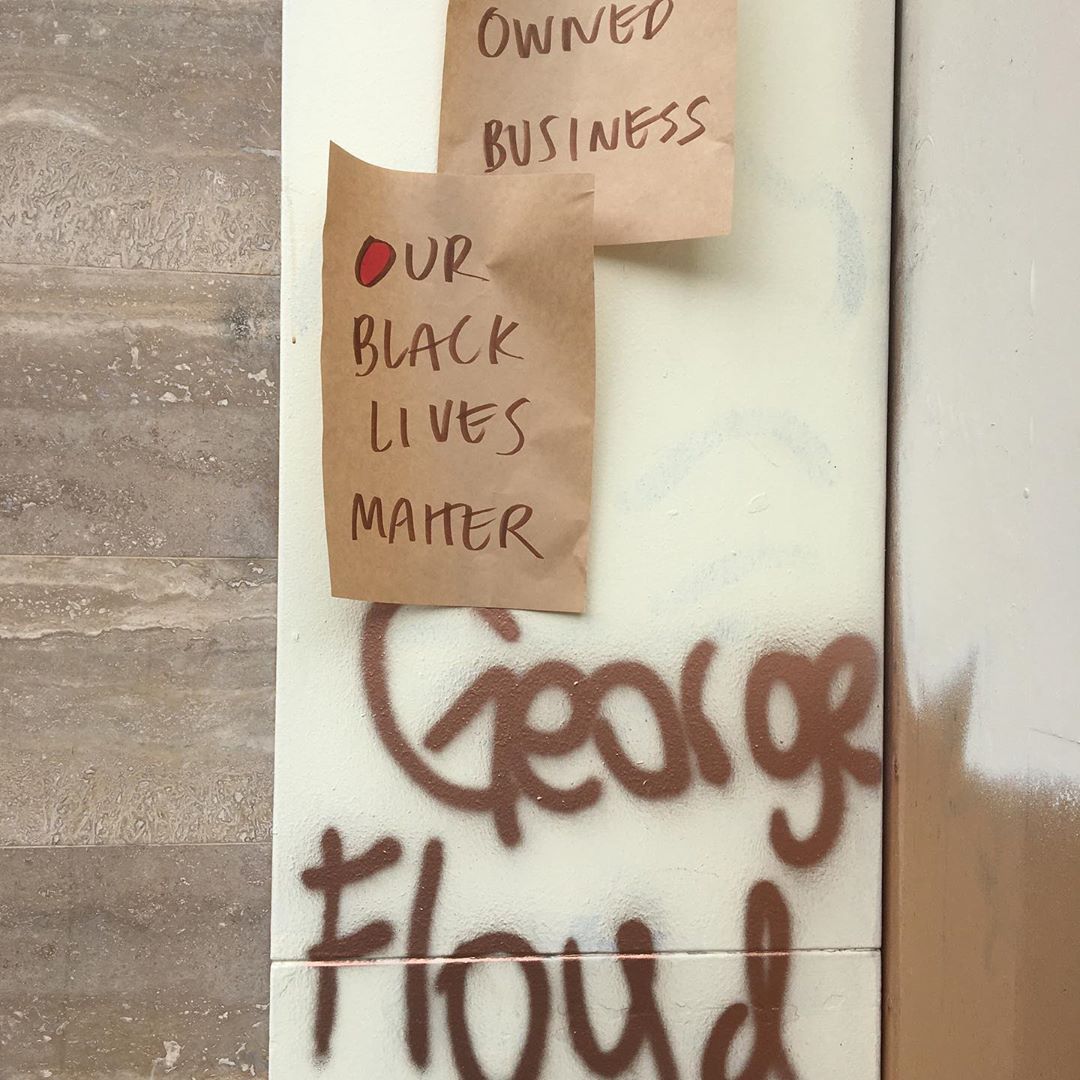 OWNED
BUSINESS
OUR
BLACK
LIVES
MATTER
George
Floyd